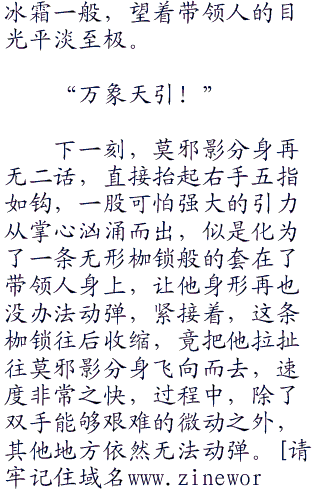 冰霜一般，望着带领人的目
光平淡至极。
“万象天引！”
下一刻，莫邪影分身再
无二话，直接抬起右手五指
如钩，一股可怕强大的引力
从掌心汹涌而出，似是化为
了一条无形枷锁般的套在了
带领人身上，让他身形再也
没办法动弹，紧接着，这条
枷锁往后收缩，竟把他拉扯
往莫邪影分身飞向而去，速
度非常之快，过程中，除了
双手能够艰难的微动之外，
其他地方依然无法动弹。[请
牢记住域名www.zinewor